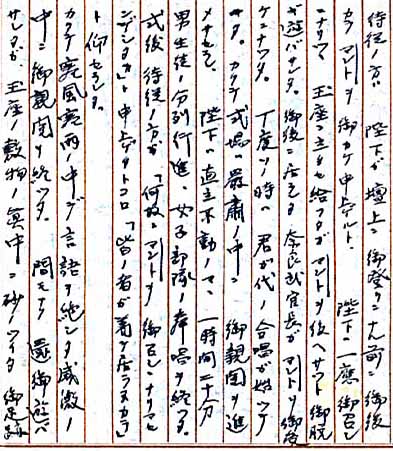 侍従ノ方ハ 陛下ガ壇上ニ御登リニナル前ニ御後
カラマントヲ御カケ申上ゲルト、陛下ハ一應御召シ
ニナリマシテ 玉座ニ立タセ給フタガマントヲ後ヘサツト御脱
ギ遊バサレタ。御後ニ居ラレタ奈良武官長ガマントヲ御受
ケニナツタ。丁度ソノ時ハ君が代ノ合唱ガ始ツタ
カクテ式場ハ嚴肅ノ中ニ御親閲ヲ進
メサセラレ 陛下ハ直立不動ノマヽ一時間二十分
男生徒ノ分列行進、女子部隊ノ奉唱ヲ終ヘタ。
式後侍従ノ方ガ「何故マントヲ御召シニナリマセ
ンデシタカ」ト申上ゲタトコロ「皆ノ者ガ着テ居ラヌカラ」
ト仰セラレタ。
カクテ寒風寒雨ノ中デ言語ヲ絶シタ感激ノ
中ニ御親閲ヲ終ヘタ。間モナク還御遊バ
サレタガ、玉座ノ敷物ノ眞中ニ砂ノツイタ御足跡